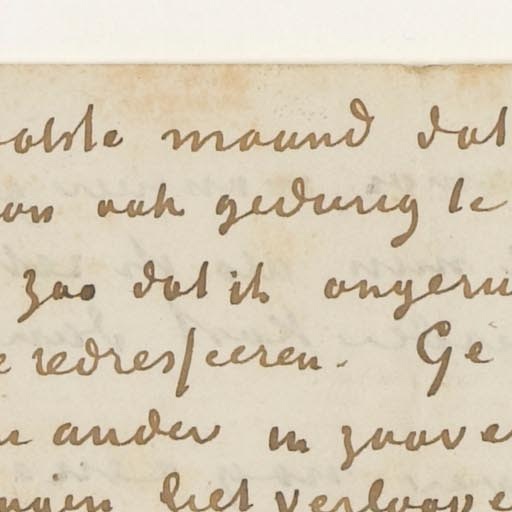 atste maand dat
aan ook gedurig te
zoo dat ik ongeru
te redresseeren. Ge
en ander in zoover
ingen het verloope